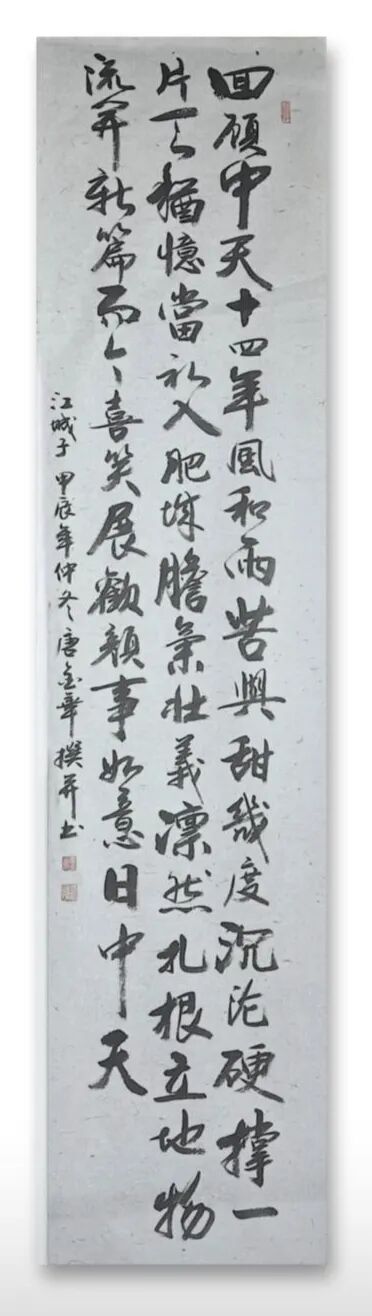 回顾中天十四年風和雨苦與甜幾度沉沦硬撐一
片天猶憶當初入肥城膽氣壯義凛然扎根立地物
流开新篇而今喜笑展歡顏事如意日中天
江城子 甲辰年仲冬 唐金章撰并书